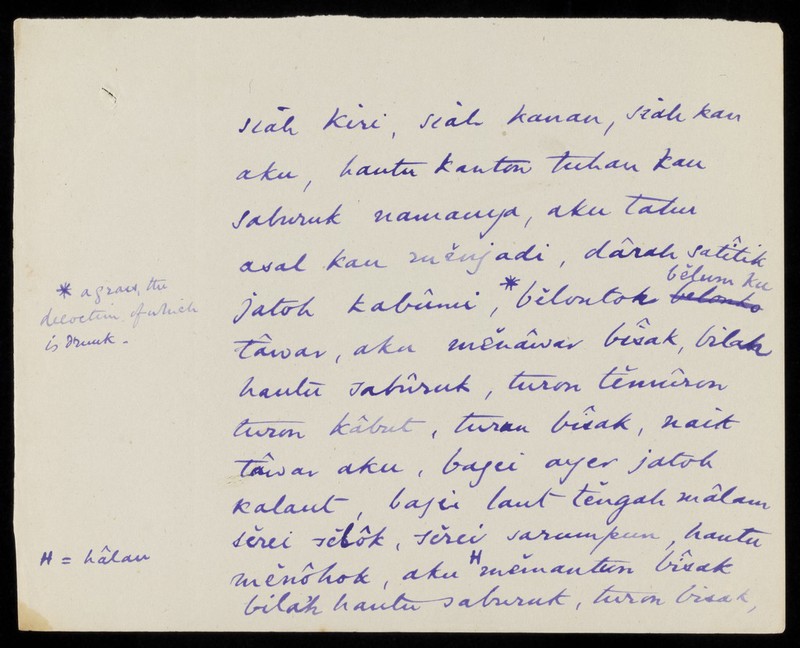 siāh kiri, siāh kanan, siāh kan
aku, hantu kanton tuhan kau
saburuk namanya, aku tahu
asal kau mĕnjadi, dârah satîtik
jatoh kabûmi, * bĕlontok bĕlum ku
tâwar, aku mĕnâwar bîsak, bilah
hantu sabûruk, turon tĕmûron
turon kâbut, turun bîsak, naik
tâwar aku, bagei ayer jatoh
kalaut, bagei laut tĕngah mâlam
sĕrei sĕlôk, sĕrei sarumpun, hantu
mĕnôhok, aku H mĕmantun bîsak
bilah hantu saburuk, turon bisak,
* a grass, the
decoction of which
is drunk.
H = hâlau